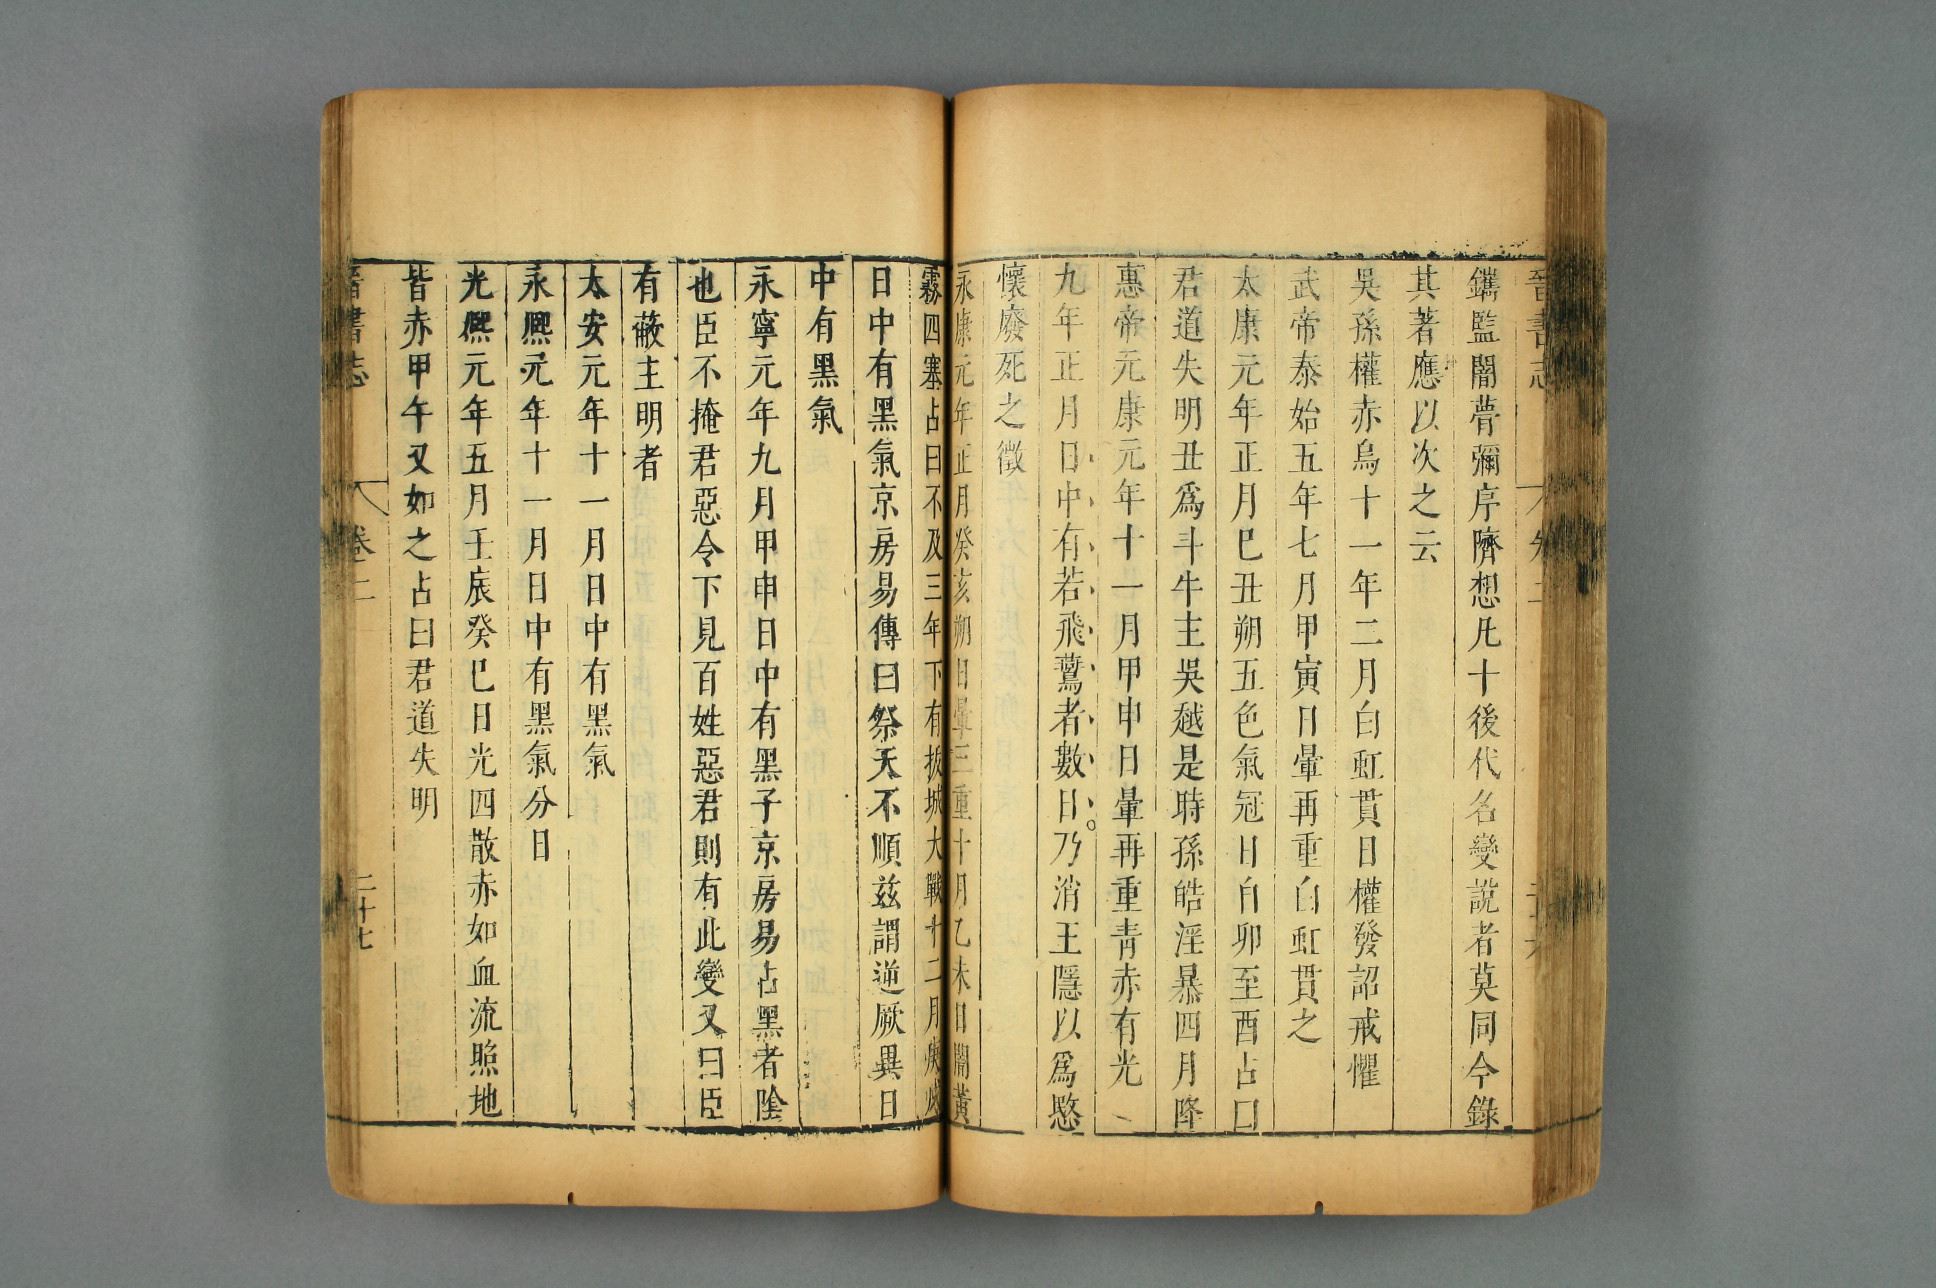 晉書志 卷二
鑴監闇瞢彌序隮想凡十後代名變說者莫同今錄
其著應以次之云
吳孫權赤烏十一年二月白虹貫日權發詔戒懼
武帝泰始五年七月甲寅日暈再重白虹貫之
太康元年正月巳丑朔五色氣冠日自卯至酉占曰
君道失明丑爲斗牛主吳越是時孫皓淫暴四月降
惠帝元康元年十一月甲申日暈再重青赤有光
九年正月日中有若飛鷰者數日乃消王隱以爲愍
懷廢死之徵
永康元年正月癸亥朔日暈三重十月乙未日闇黃
霧四塞占曰不及三年下有拔城大戰十二月庚戌
日中有黑氣京房易傳曰祭天不順兹謂逆厥異日
中有黑氣
永寧元年九月甲申日中有黑子京房易占黑者陰
也臣不掩君惡令下見百姓惡君則有此變又曰臣
有蔽主明者
太安元年十一月日中有黑氣
永興元年十一月日中有黑氣分日
光熙元年五月壬辰癸巳日光四散赤如血流照地
皆赤甲午又如之占曰君道失明
晉書志 卷二 二十七